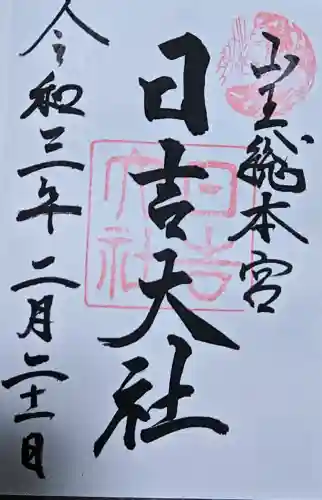 山王総本宮
日吉大社
日吉大社
令和三年二月二十一日